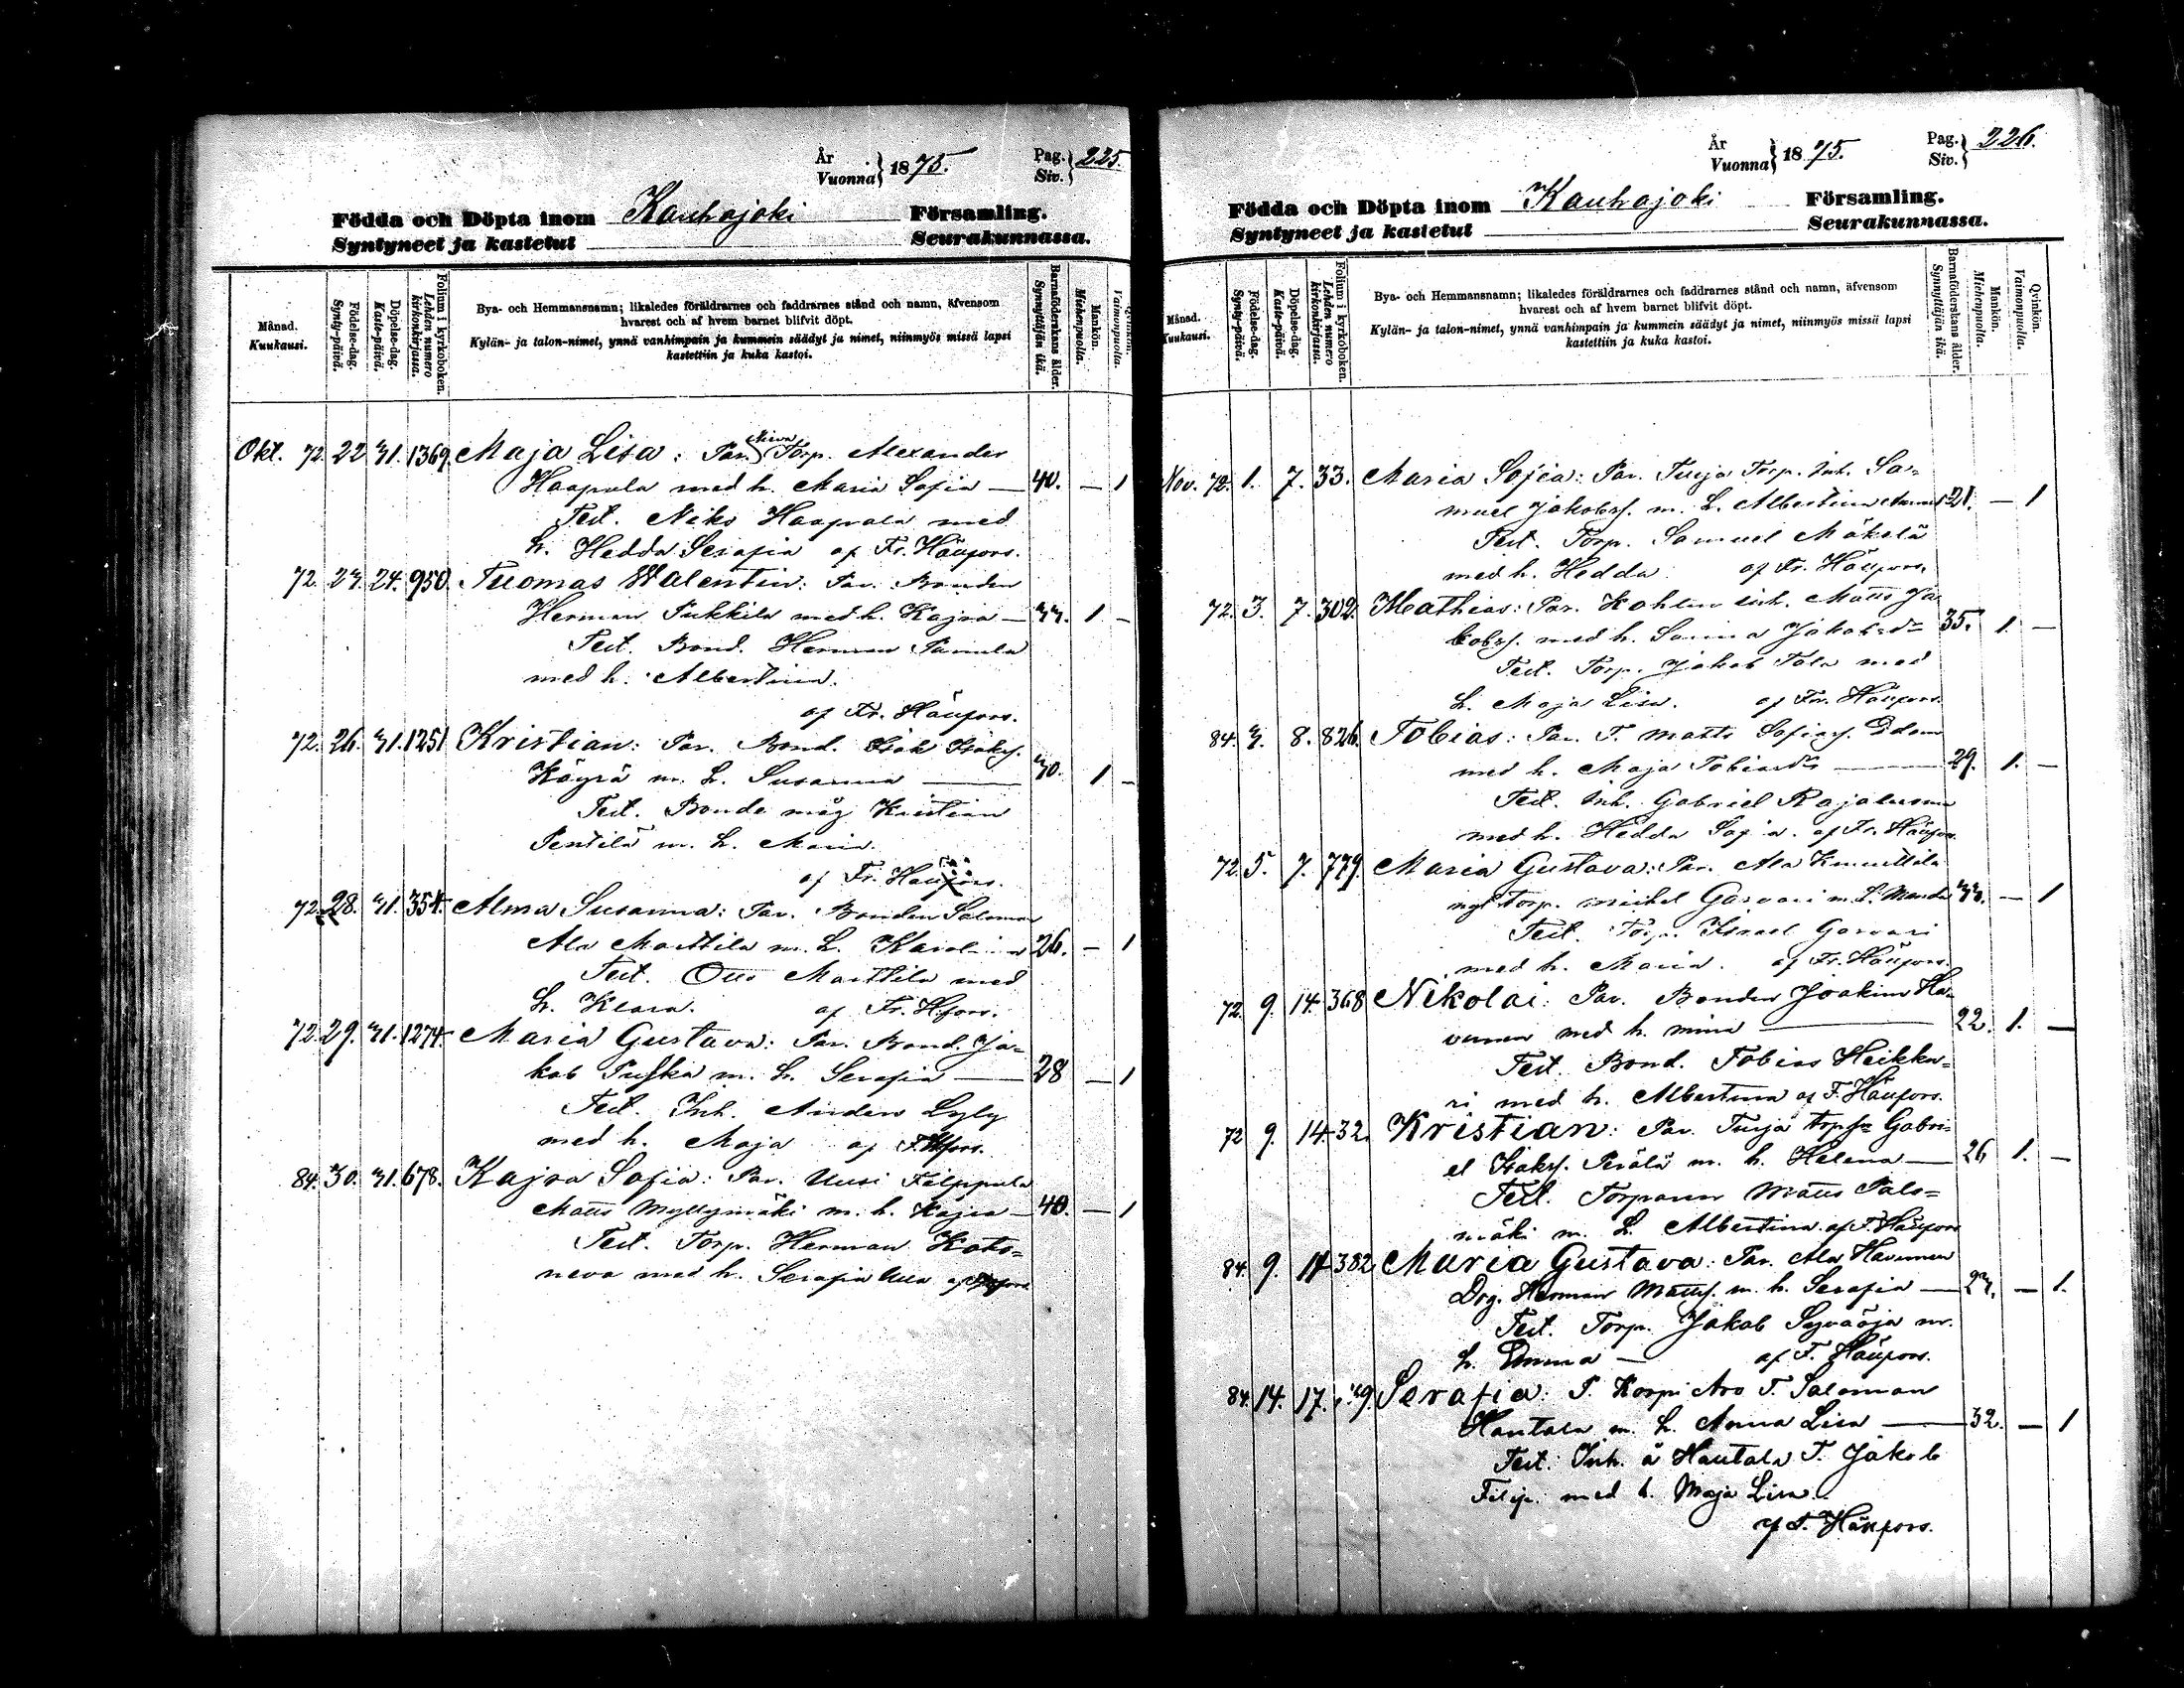 År
Vuonna } 1875.
Pag.
Siv. } 225.
Födda och Döpta inom Kauhajoki Församling.
Syntyneet ja kastetut Seurakunnassa.
Månad.
Kuukausi.
Födelse-dag.
Synty-päivä.
Döpelse-dag.
Kaste-päivä.
Folium i kyrkoboken.
Lehden numero kirkonkirjassa.
Bya- och Hemmansnamn; likaledes föräldrarnes och faddrarnes stånd och namn, äfvensom
hvarest och af hvem barnet blifvit döpt.
Kylän- ja talon-nimet, ynnä vanhimpain ja kummein säädyt ja nimet, niinmyös missä lapsi
kastettiin ja kuka kastoi.
Barnaföderskans ålder.
Synnyttäjän ikä.
Mankön.
Miehenpuolia.
Qvinkön.
Vaimonpuolia.
Okt. 72. 22 31. 1369. Maja Lisa: Par. Torp. Alexander
Haapala med h. Maria Sofia — 40. — 1
Test. Niko Haapala med
h. Hedda Serafia af Fr. Häufors.
72. 23. 24. 950. Tuomas Walentin: Par. Bonden
Herman Pukkila med h. Kajsa — 33. 1 —
Test. Bond. Herman Panula
med h. Albertina.
af Fr. Häufors.
72. 26. 31. 1251 Kristian: Par. Bond. Isak Isaks.
Köyrä m. h. Susanna — 30. 1 —
Test. Bonde måg Kristian
Pentilä m. h. Maria.
af Fr. Häufors.
72. 28. 31. 354. Alma Susanna: Par. Bonden Salomon
Ala Marttila m. h. Karolina 26. — 1
Test. Otto Marttila med
h. Klara. af Fr. Hfors.
72. 29. 31. 1274. Maria Gustava: Par. Bond. Ja-
kob Puska m. h. Serafia — 28 — 1
Test. Inh. Anders Lyly
med h. Maja af F. Hfors.
84. 30. 31. 678. Kajsa Sofia: Par. Uusi Filppula
Matts Myllymäki m. h. Kajsa — 40. — 1
Test. Torp. Herman Koto-
neva med h. Serafia Ulla af
År
Vuonna } 1875.
Pag.
Siv. } 226.
Födda och Döpta inom Kauhajoki Församling.
Syntyneet ja kastetut Seurakunnassa.
Månad.
Kuukausi.
Födelse-dag.
Synty-päivä.
Döpelse-dag.
Kaste-päivä.
Folium i kyrkoboken.
Lehden numero kirkonkirjassa.
Bya- och Hemmansnamn; likaledes föräldrarnes och faddrarnes stånd och namn, äfvensom
hvarest och af hvem barnet blifvit döpt.
Kylän- ja talon-nimet, ynnä vanhimpain ja kummein säädyt ja nimet, niinmyös missä lapsi
kastettiin ja kuka kastoi.
Barnaföderskans ålder.
Synnyttäjän ikä.
Mankön.
Miehenpuolia.
Qvinkön.
Vaimonpuolia.
Nov. 72. 1. 7. 33. Maria Sofia: Par. Turja Torp. Inh. Sa-
muel Jakobss. m. h. Albertina 21. — 1
Test. Torp. Samuel Mäkelä
med h. Hedda af Fr. Häufors.
72. 3. 7. 302. Mathias: Par. Inh. Matts Ja-
kobss. med h. Sanna Jakobsd:r 35. 1. —
Test. Torp. Jakob Tala med
h. Maja Lisa. af Fr. Häufors.
84. 3. 8. 826. Tobias: Par. T. Matts Sofias.
med h. Maja Tobiasd:r — 29. 1. —
Test. Inh. Gabriel Rajaluoma
med h. Hedda Sofia. af Fr. Häufors.
72. 5. 7. 779. Maria Gustava: Par. Ala Knuuttila
torp. Mickel Garvari m. h. Manda 33. — 1
Test. Torp. Israel Garvari
med h. Maria. af Fr. Häufors.
72. 9. 14. 368 Nikolai: Par. Bonden Joakim Ha-
vunen med h. Mina — 22. 1. —
Test. Bond. Tobias Heikku-
ri med h. Albertina af F. Häufors.
72 9. 14. 32. Kristian: Par. Turja Gabri-
el Isaks. Perälä m. h. Helena — 26 1. —
Test. Torparen Matts Palo-
mäki m. h. Albertina. af F. Häufors
84. 9. 14 382 Maria Gustava: Par. Ala Havunen
Drg. Herman Mattss. m. h. Serafia — 23. — 1.
Test. Torp. Jakob Syväoja m.
h. Emma — af F. Häufors.
84. 14. 17. Serafia: P. Korpi Aro T. Salomon
Hautala m. h. Anna Lisa — 32. — 1
Test. Inh. å Hautala T. Jakob
Filip. med h. Maja Lisa.
af F. Häufors.